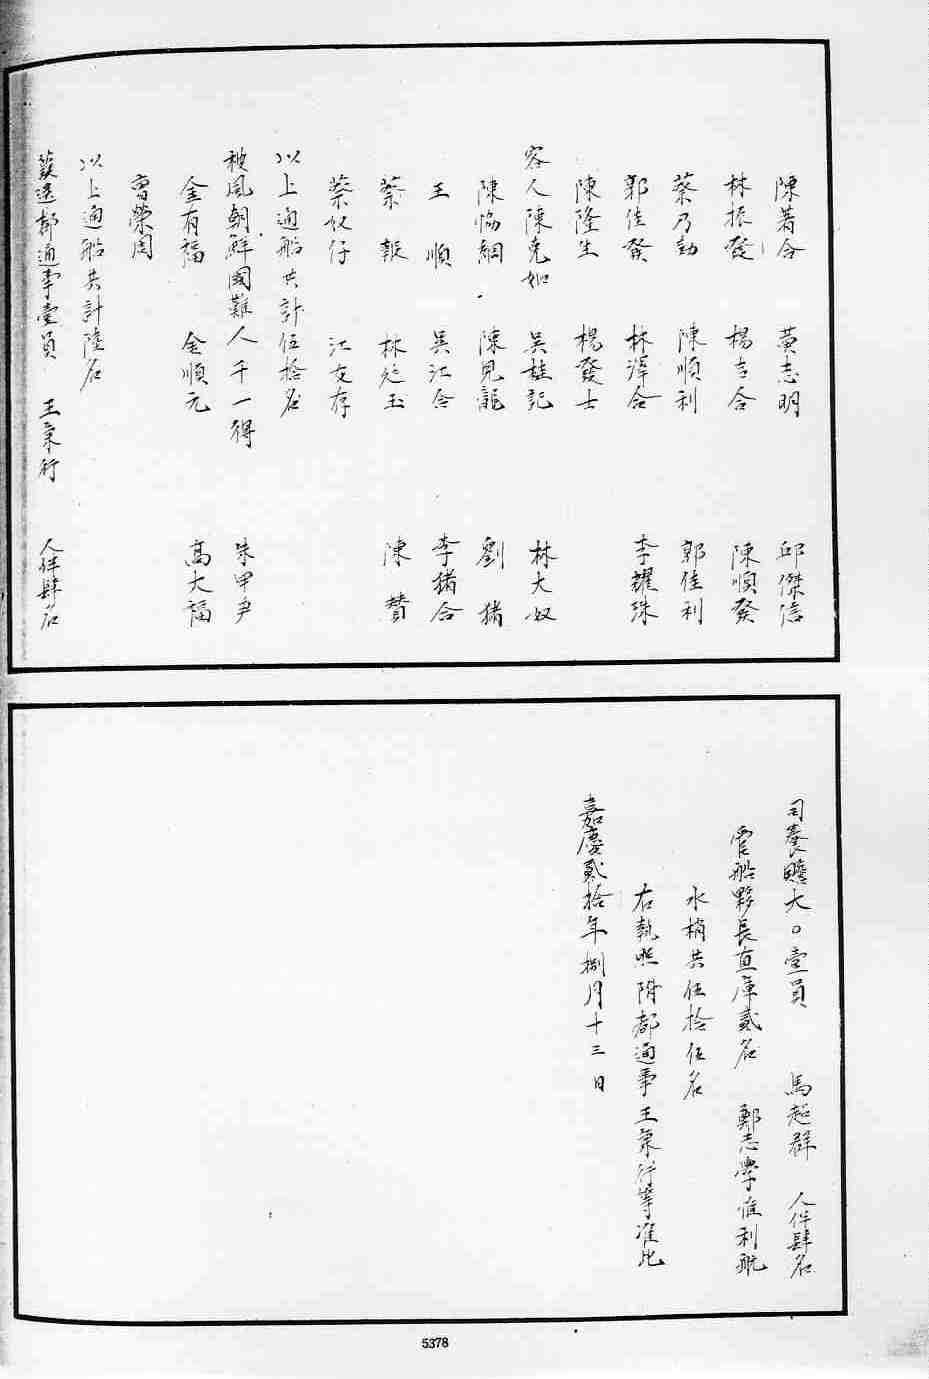 陳著合 黃志明 邱傑信
林振發 楊吉合 陳順發
蔡乃勛 陳順利 郭佳利
郭佳發 林澤合 李耀珠
陳隆生 楊發士
客人陳克如 吳桂記 林大奴
陳協綢 陳見龍 劉猪
王順 吳江合 李猪合
蔡報 林廷玉 陳贊
蔡奴仔 江友存
以上通船共計伍拾名
被風朝鮮國難人千一得 朱甲爭
金有福 金順元 高大福
曾榮周
以上通船共計陸名
護送都通事壹員 王秉行 人伴肆名
司養贍大〇壹員 馬超群 人伴肆名
管船夥長直庫貳名 鄭志學 惟利航
水梢共伍拾伍名
右執照附都通事王秉行等准此
嘉慶貳拾年捌月十三日
5378